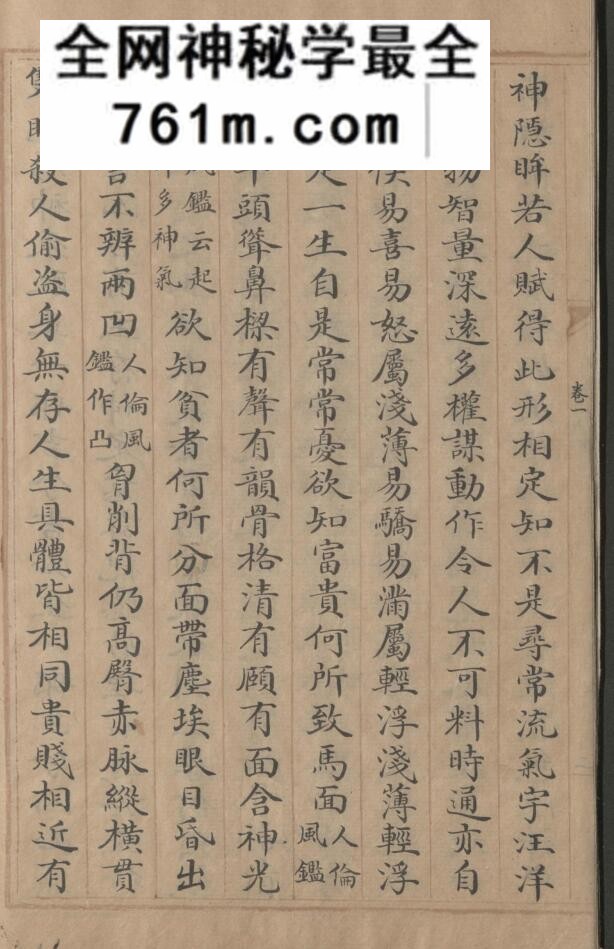 全网神秘学最全
761m.com
神隱眸若人賦得此形相定知不是尋常流氣宇汪洋
智量深遠多權謀動作令人不可料時通亦自
易喜易怒屬淺薄易驕易滿屬輕浮淺薄輕浮
一生自是常常憂欲知富貴何所致馬面人倫風鑑
頭聳鼻樑有聲有韻骨格清有頤有面含神光
鑑云起多神氣欲知貧者何所分面帶塵埃眼目昏出
言不辨兩凹人倫風鑑作凸胷削背仍高臀赤脉縱橫貫
殺人偷盗身無存人生具體皆相同貴賤相近有
卷一